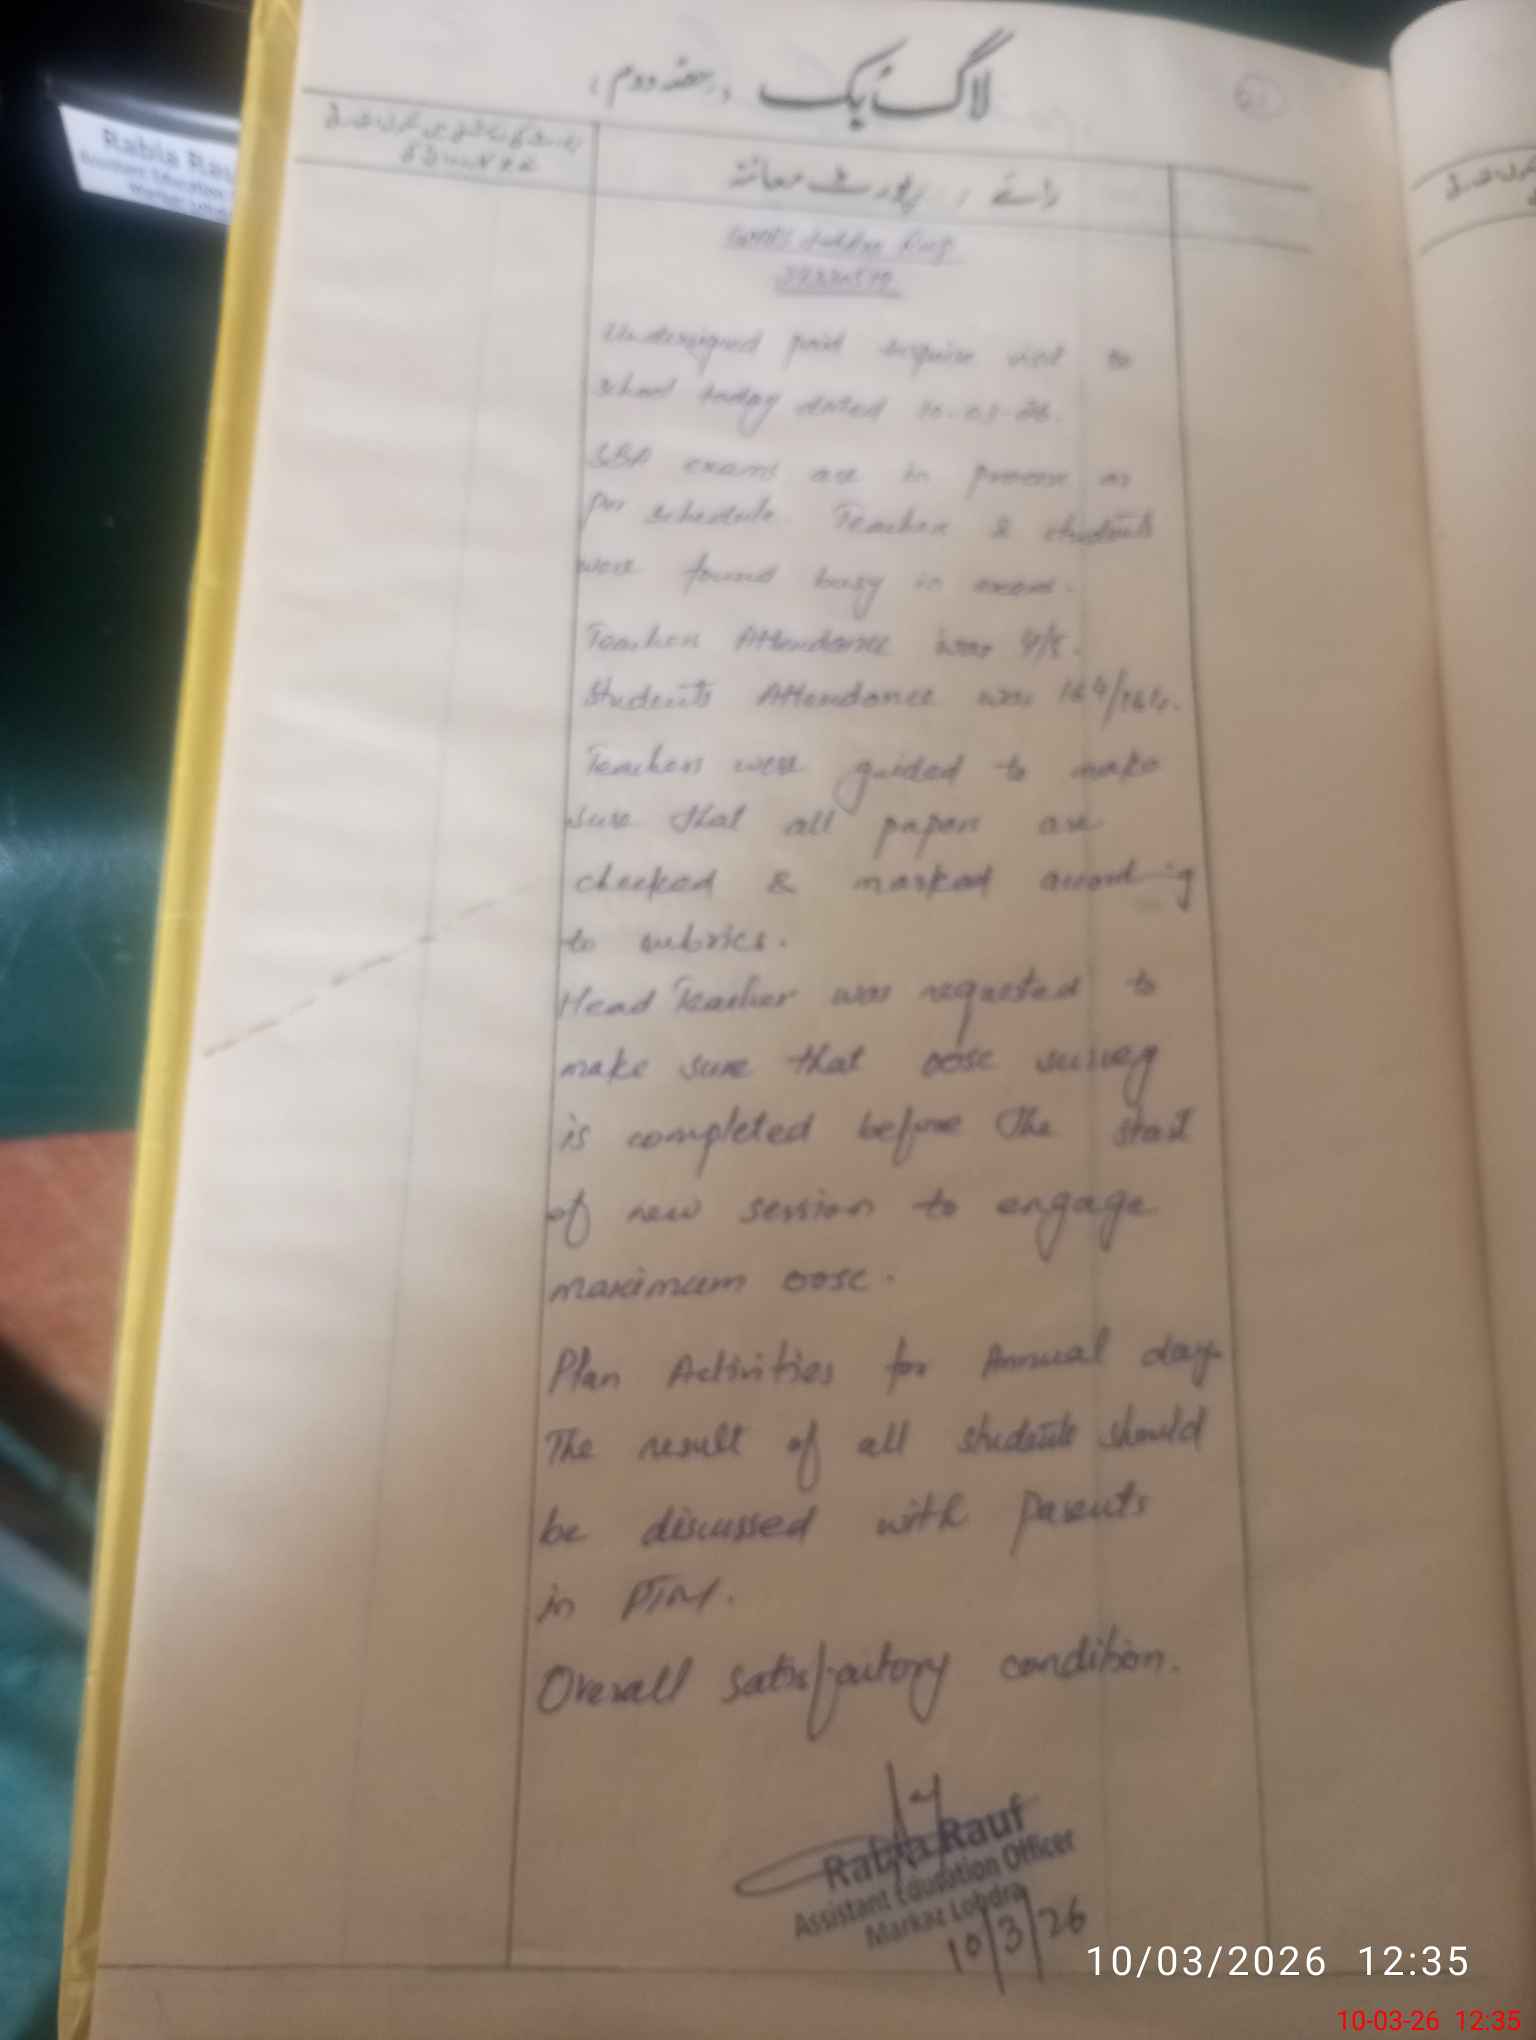 لاگ بک (حصہ دوم)
رائے / رپورٹ معائنہ
Rabia Rau
Undersigned paid enquire visit to
school today dated 10-03-26.
SBA exams are in process as
per schedule. Teachers & students
were found busy in exams.
Teachers Attendance was 4/5.
Students Attendance was 164/
Teachers were guided to make
sure that all papers are
checked & marked according
to rubrics.
Head Teacher was requested to
make sure that OOSC survey
is completed before the start
of new session to engage
maximum OOSC.
Plan Activities for Annual day.
The result of all students should
be discussed with Parents
in PTM.
Overall satisfactory condition.
Rabia Rauf
Assistant Education Officer
Markaz Lohdra
10/3/26
10/03/2026 12:35
10-03-26 12:35